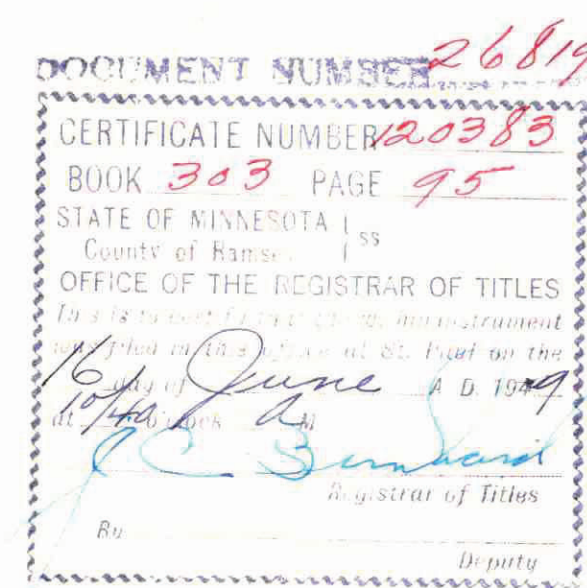 DOCUMENT NUMBER 26819
CERTIFICATE NUMBER 120383
BOOK 303 PAGE 95
STATE OF MINNESOTA
ss
County of Ramsey
OFFICE OF THE REGISTRAR OF TITLES
This is to certify that the within instrument
was filed in this office at St. Paul on the
16 day of June A. D. 1949
at 10/40 o'clock A M
J C Bernhard
Registrar of Titles
By
Deputy